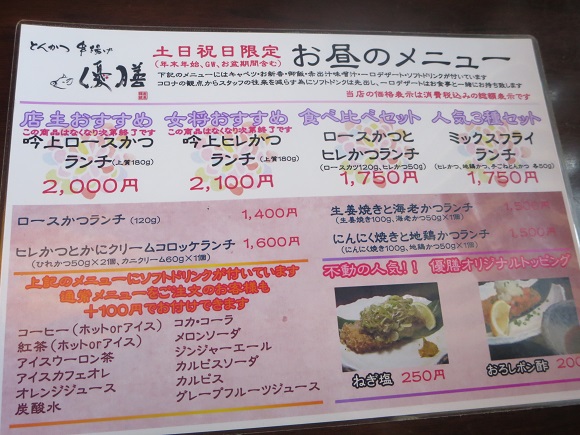 とんかつ 串揚げ
優膳
土日祝日限定
(年末年始、GW、お盆期間含む)
お昼のメニュー
下記のメニューにはキャベツ・お新香・御飯・赤出汁味噌汁・一口デザート・ソフトドリンクが付いています
コロナの観点からスタッフの往来を減らす為にソフトドリンク、一口デザートはお食事と一緒にお持ち致します
当店の価格表示は消費税込みの総額表示です
店主おすすめ
この商品はなくなり次第終了です
吟上ロースかつ
ランチ(上質180g)
2,000円
女将おすすめ
この商品はなくなり次第終了です
吟上ヒレかつ
ランチ(上質180g)
2,100円
食べ比べセット
ロースかつと
ヒレかつランチ
(ロースカツ120g、ヒレかつ50g)
1,750円
人気3種セット
ミックスフライ
ランチ
(ヒレかつ、地鶏かつ、手ごねとんかつ 各50g)
1,750円
ロースかつランチ (120g) 1,400円
ヒレかつとかにクリームコロッケランチ 1,600円
(ひれかつ50g×2個、カニクリーム60g×1個)
生姜焼きと海老かつランチ 1,500円
(生姜焼き100g、海老かつ50g×1個)
にんにく焼きと地鶏かつランチ 1,500円
(にんにく焼き100g、地鶏かつ50g×1個)
上記のメニューにソフトドリンクが付いています
通常メニューをご注文のお客様も
+100円でお付けできます
コーヒー(ホットorアイス)
紅茶(ホットorアイス)
アイスウーロン茶
アイスカフェオレ
オレンジジュース
炭酸水
コカ・コーラ
メロンソーダ
ジンジャーエール
カルピスソーダ
カルピス
グレープフルーツジュース
不動の人気!! 優膳オリジナルトッピング
ねぎ塩 250円
おろしポン酢 200